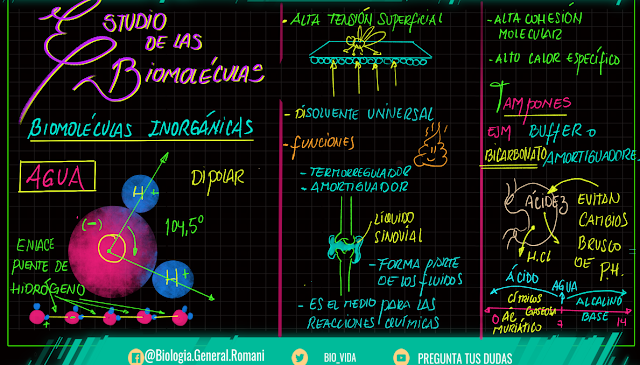 ESTUDIO
DE LAS
BIOMOLÉCULAS
BIOMOLÉCULAS INORGÁNICAS
AGUA
DIPOLAR
H +
(-)
O
104,5°
H+
ENLACE
PUENTE DE
HIDRÓGENO
- +
- ALTA TENSIÓN SUPERFICIAL
- DISOLVENTE UNIVERSAL
- FUNCIONES
- TERMOREGULADOR
- AMORTIGUADOR
LÍQUIDO
SINOVIAL
- FORMA PARTE
DE LOS FLUIDOS
- ES EL MEDIO PARA LAS
REACCIONES QUÍMICAS
- ALTA COHESIÓN
MOLECULAR
- ALTO CALOR ESPECÍFICO
TAMPONES
EJM BUFFER O
BICARBONATO/AMORTIGUADORES
ÁCIDEZ
H.Cl
EVITAN
CAMBIOS
BRUSCO
DE PH.
ÁCIDO
AGUA
CÍTRICOS
GASEOSA
ALCALINO
BASE
0 7 14
AC
MURIÁTICO
@Biologia.General.Romani
BIO_VIDA
PREGUNTA TUS DUDAS